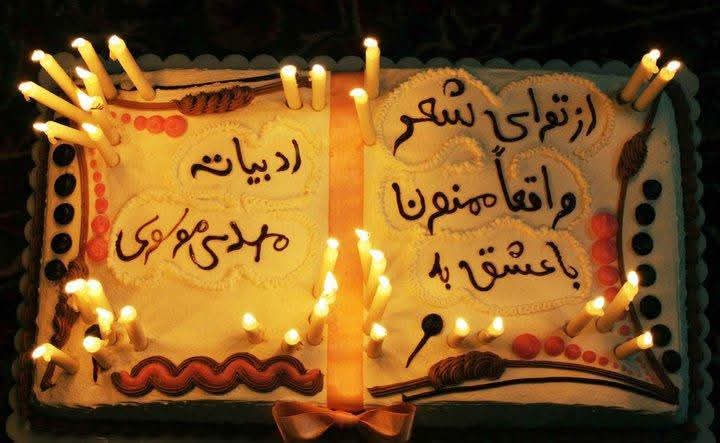 از تو ای شعر
واقعاً ممنون
با عشق به
ادبیات
مهدی موسوی